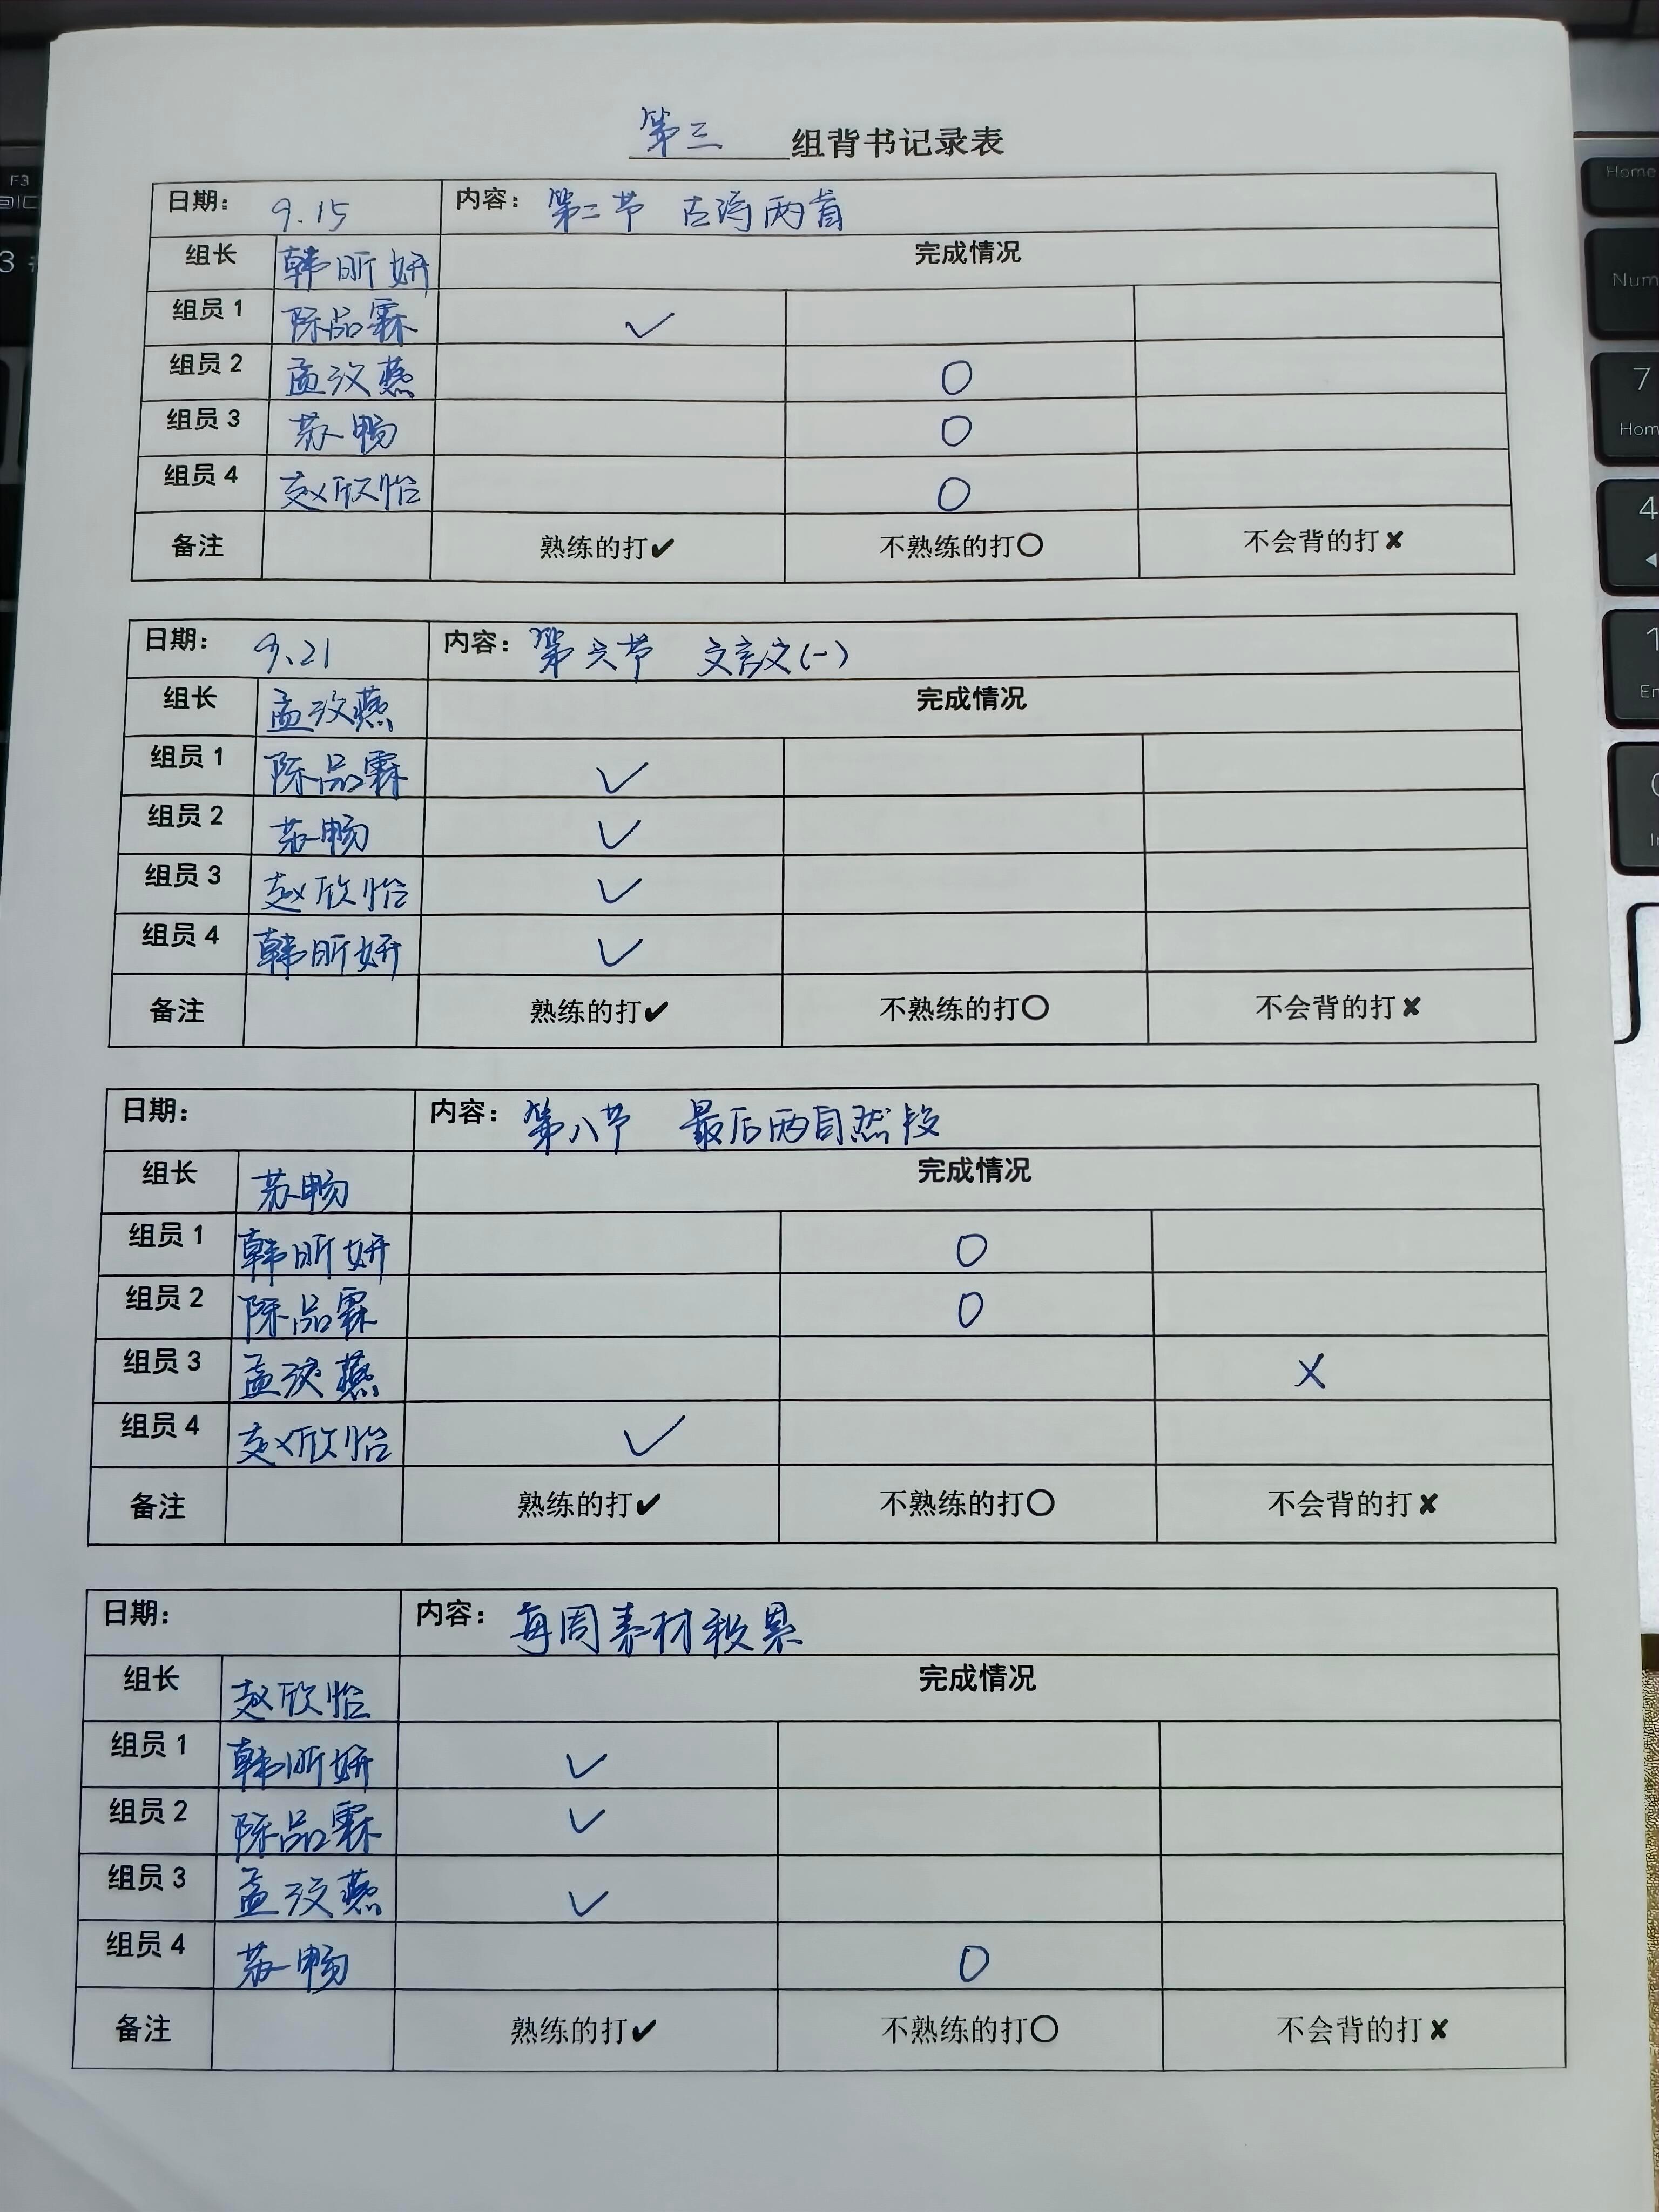 第三 组背书记录表
日期： 9.15 内容： 第二节 古诗两首
组长 韩昕妍 完成情况
组员1 陈品霖 ✓
组员2 孟汶燕 O
组员3 苏畅 O
组员4 赵欣怡 O
备注 熟练的打✔ 不熟练的打〇 不会背的打✘
日期： 9.21 内容： 第六节 文言文(一)
组长 孟汶燕 完成情况
组员1 陈品霖 ✓
组员2 苏畅 ✓
组员3 赵欣怡 ✓
组员4 韩昕妍 ✓
备注 熟练的打✔ 不熟练的打〇 不会背的打✘
日期： 内容： 第八节 最后两自然段
组长 苏畅 完成情况
组员1 韩昕妍 O
组员2 陈品霖 O
组员3 孟汶燕 X
组员4 赵欣怡 ✓
备注 熟练的打✔ 不熟练的打〇 不会背的打✘
日期： 内容： 每周素材积累
组长 赵欣怡 完成情况
组员1 韩昕妍 ✓
组员2 陈品霖 ✓
组员3 孟汶燕 ✓
组员4 苏畅 O
备注 熟练的打✔ 不熟练的打〇 不会背的打✘
F3
3
Home
Num
7
Home
4
1